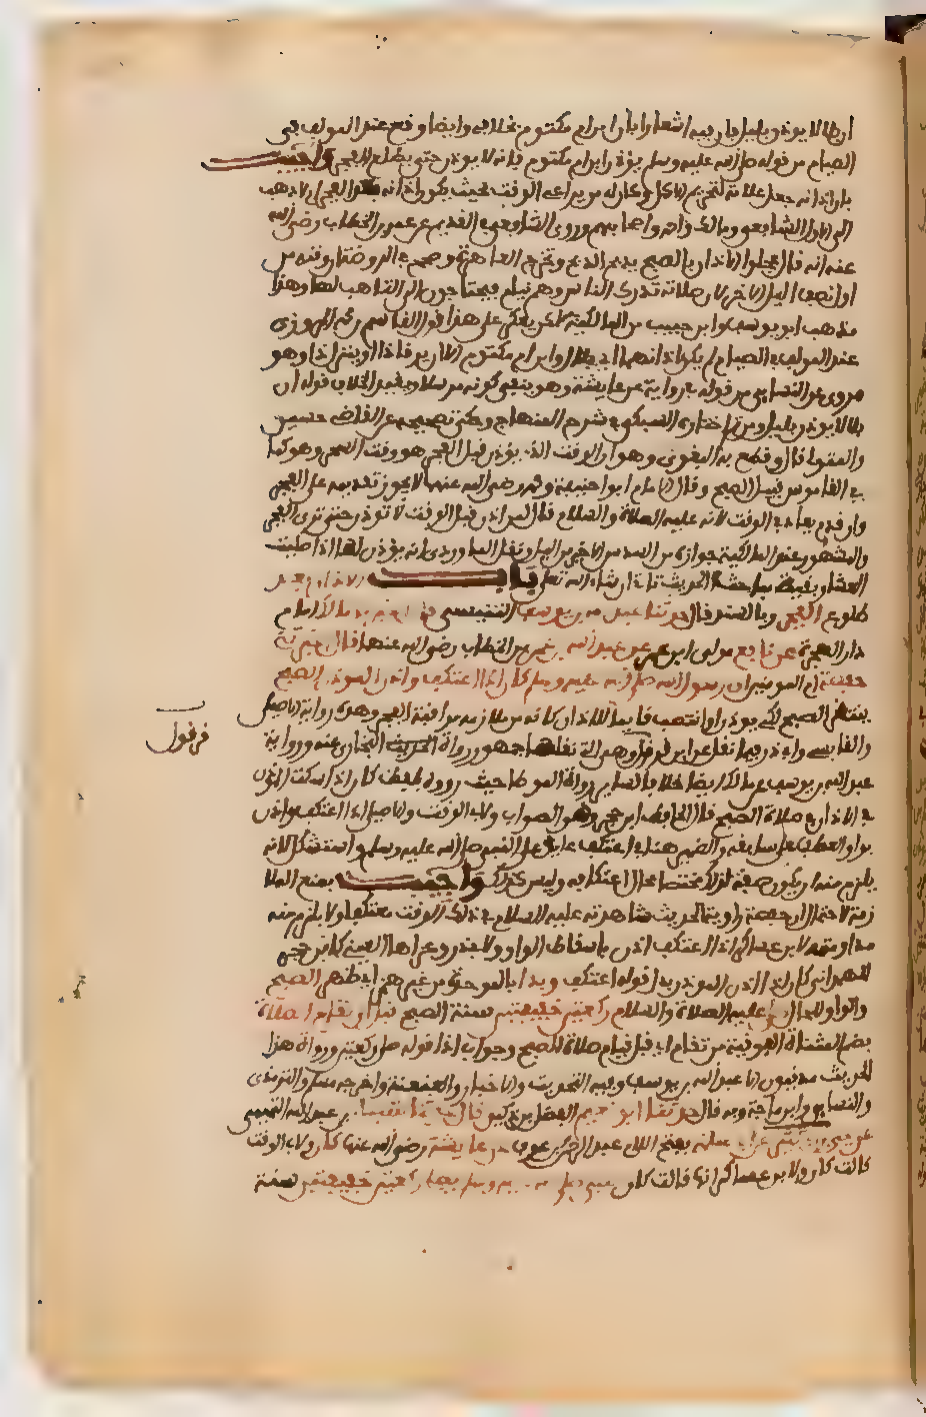 ان بلالا يوذن بليل فان فيه اشعارا بان ابن ام مكتوم بخلافه وايضا وقع عند المولف في
الصيام من قوله صلى الله عليه وسلم يوذن ابن ام مكتوم فانه لا يوذن حتى يطلع الفجر واجيب
بان اذانه جعل علامة لتحريم الاكل وكان له من يراعي الوقت بحيث يكون اذانه الفجر ذهب
الى الاول الشافعي ومالك واحمد واصحابهم وروى الشافعي في القديم عن عمر بن الخطاب رضي الله
عنه انه قال عجلوا الاذان بالصبح يدلج المدلج وتخرج العاهرة وصحح في الروضة ان وقته من
اول نصف اليل الاخر لان صلاته تدرك الناس وهم نيام فيحتاجون الى التاهب لها وهذا
مذهب ابو يوسف وابن حبيب من المالكية لكن يعكر على هذا قول القاسم بن محمد المروي
عند المولف في الصيام لم يكن بين اذانهما اي بلال وابن ام مكتوم الا ان يرقى ذا وينزل ذا وهو
مروي عن النسائي من قوله في رواية عن عايشة وهو ينفي كونه مرسلا ويقيد اطلاق قوله ان
بلالا يوذن بليل ومن ثم اختاره السبكي في شرح المنهاج وحكى تصحيحه عن القاضي حسين
والمتولي قال وقطع به البغوي وهو ان الوقت الذي يؤذن فيه قبل الفجر هو وقت السحر وهو كما
في القاموس قبيل الصبح وقال الامام ابو حنيفة ومحمد رضي الله عنهما لا يجوز تقديمه على الفجر
وان قدم يعاد في الوقت لانه عليه الصلاة والسلام قال لمن اذن قبل الوقت لا توذن حتى ترى الفجر
والمشهور عند المالكية جوازه من السدس الاخير من اليل ونقل الماوردي انه يؤذن لها اذا صليت
العشا وبقية مباحث الحديث تاتي ان شاء الله تعلى باب الاذان بعد
طلوع الفجر وبالسند قال حدثنا عبد الله بن يوسف التنيسي قال اخبرنا مالك الامام
دار الهجرة عن نافع مولى ابن عمر عن عبد الله بن عمر بن الخطاب رضي الله عنهما قال اخبرتني
حفصة ام المومنين ان رسول الله صلى الله عليه وسلم كان اذا اعتكف واذن الموذن للصبح
ينتظر الصبح لكي يوذن او انتصب قايما للاذان كانه من ملازمة مراقبة الفجر وهذه رواية الاصيلي
والقابسي وابي ذر فيما نقل عن ابن قرقول وهي التي نقلها جمهور رواة البخاري عنه ورواية
عبد الله بن يوسف عن مالك ايضا خلافا لساير رواة الموطا حيث رووه بلفظ كان اذا سكت الموذن
في الاذان في صلاة الصبح قال الحافظ ابن حجر وهو الصواب ولابي الوقت والاصيلي اذا اعتكف واذن
بواو العطف على سابقه والضمير هنا في اعتكف عايد على النبي صلى الله عليه وسلم واستشكل لانه
يلزم منه ان يكون صنيعه لذلك مختصا بحال اعتكافه وليس كذلك واجيب بمنع الملا
زمة لاحتمال ان حفصة راوية الحديث شاهدته عليه السلام في ذلك الوقت معتكفا ولا يلزم منه
مداومته ولابن عساكر اذا اعتكف اذن باسقاط الواو ولابي ذر وعزاها العيني كابن حجر
للهمداني كان اذا اذن الموذن بدل قوله اعتكف وبدا بالموحدة من غير همز اي ظهر الصبح
والواو للحال صلى عليه الصلاة والسلام ركعتين خفيفتين سنة الصبح قبل ان تقام الصلاة
بضم المثناة الفوقية من تقام اي قبل قيام صلاة الصبح وجواب اذا قوله صلى ركعتين ورواة هذا
الحديث مدنيون الا عبد الله بن يوسف وفيه التحديث والاخبار والعنعنة واخرجه مسلم والترمذي
والنسايي وابن ماجة وبه قال حدثنا ابو نعيم الفضل بن دكين قال حدثنا شيبان بن عبد الله التميمي
عن يحيى عن ابي سلمة بفتح اللام عبد الرحمن بن عوف عن عايشة رضي الله عنها كان ولابي الوقت
قالت كان ولابن عساكر انها قالت كان النبي صلى الله عليه وسلم يصلي ركعتين خفيفتين سنة
قرقول